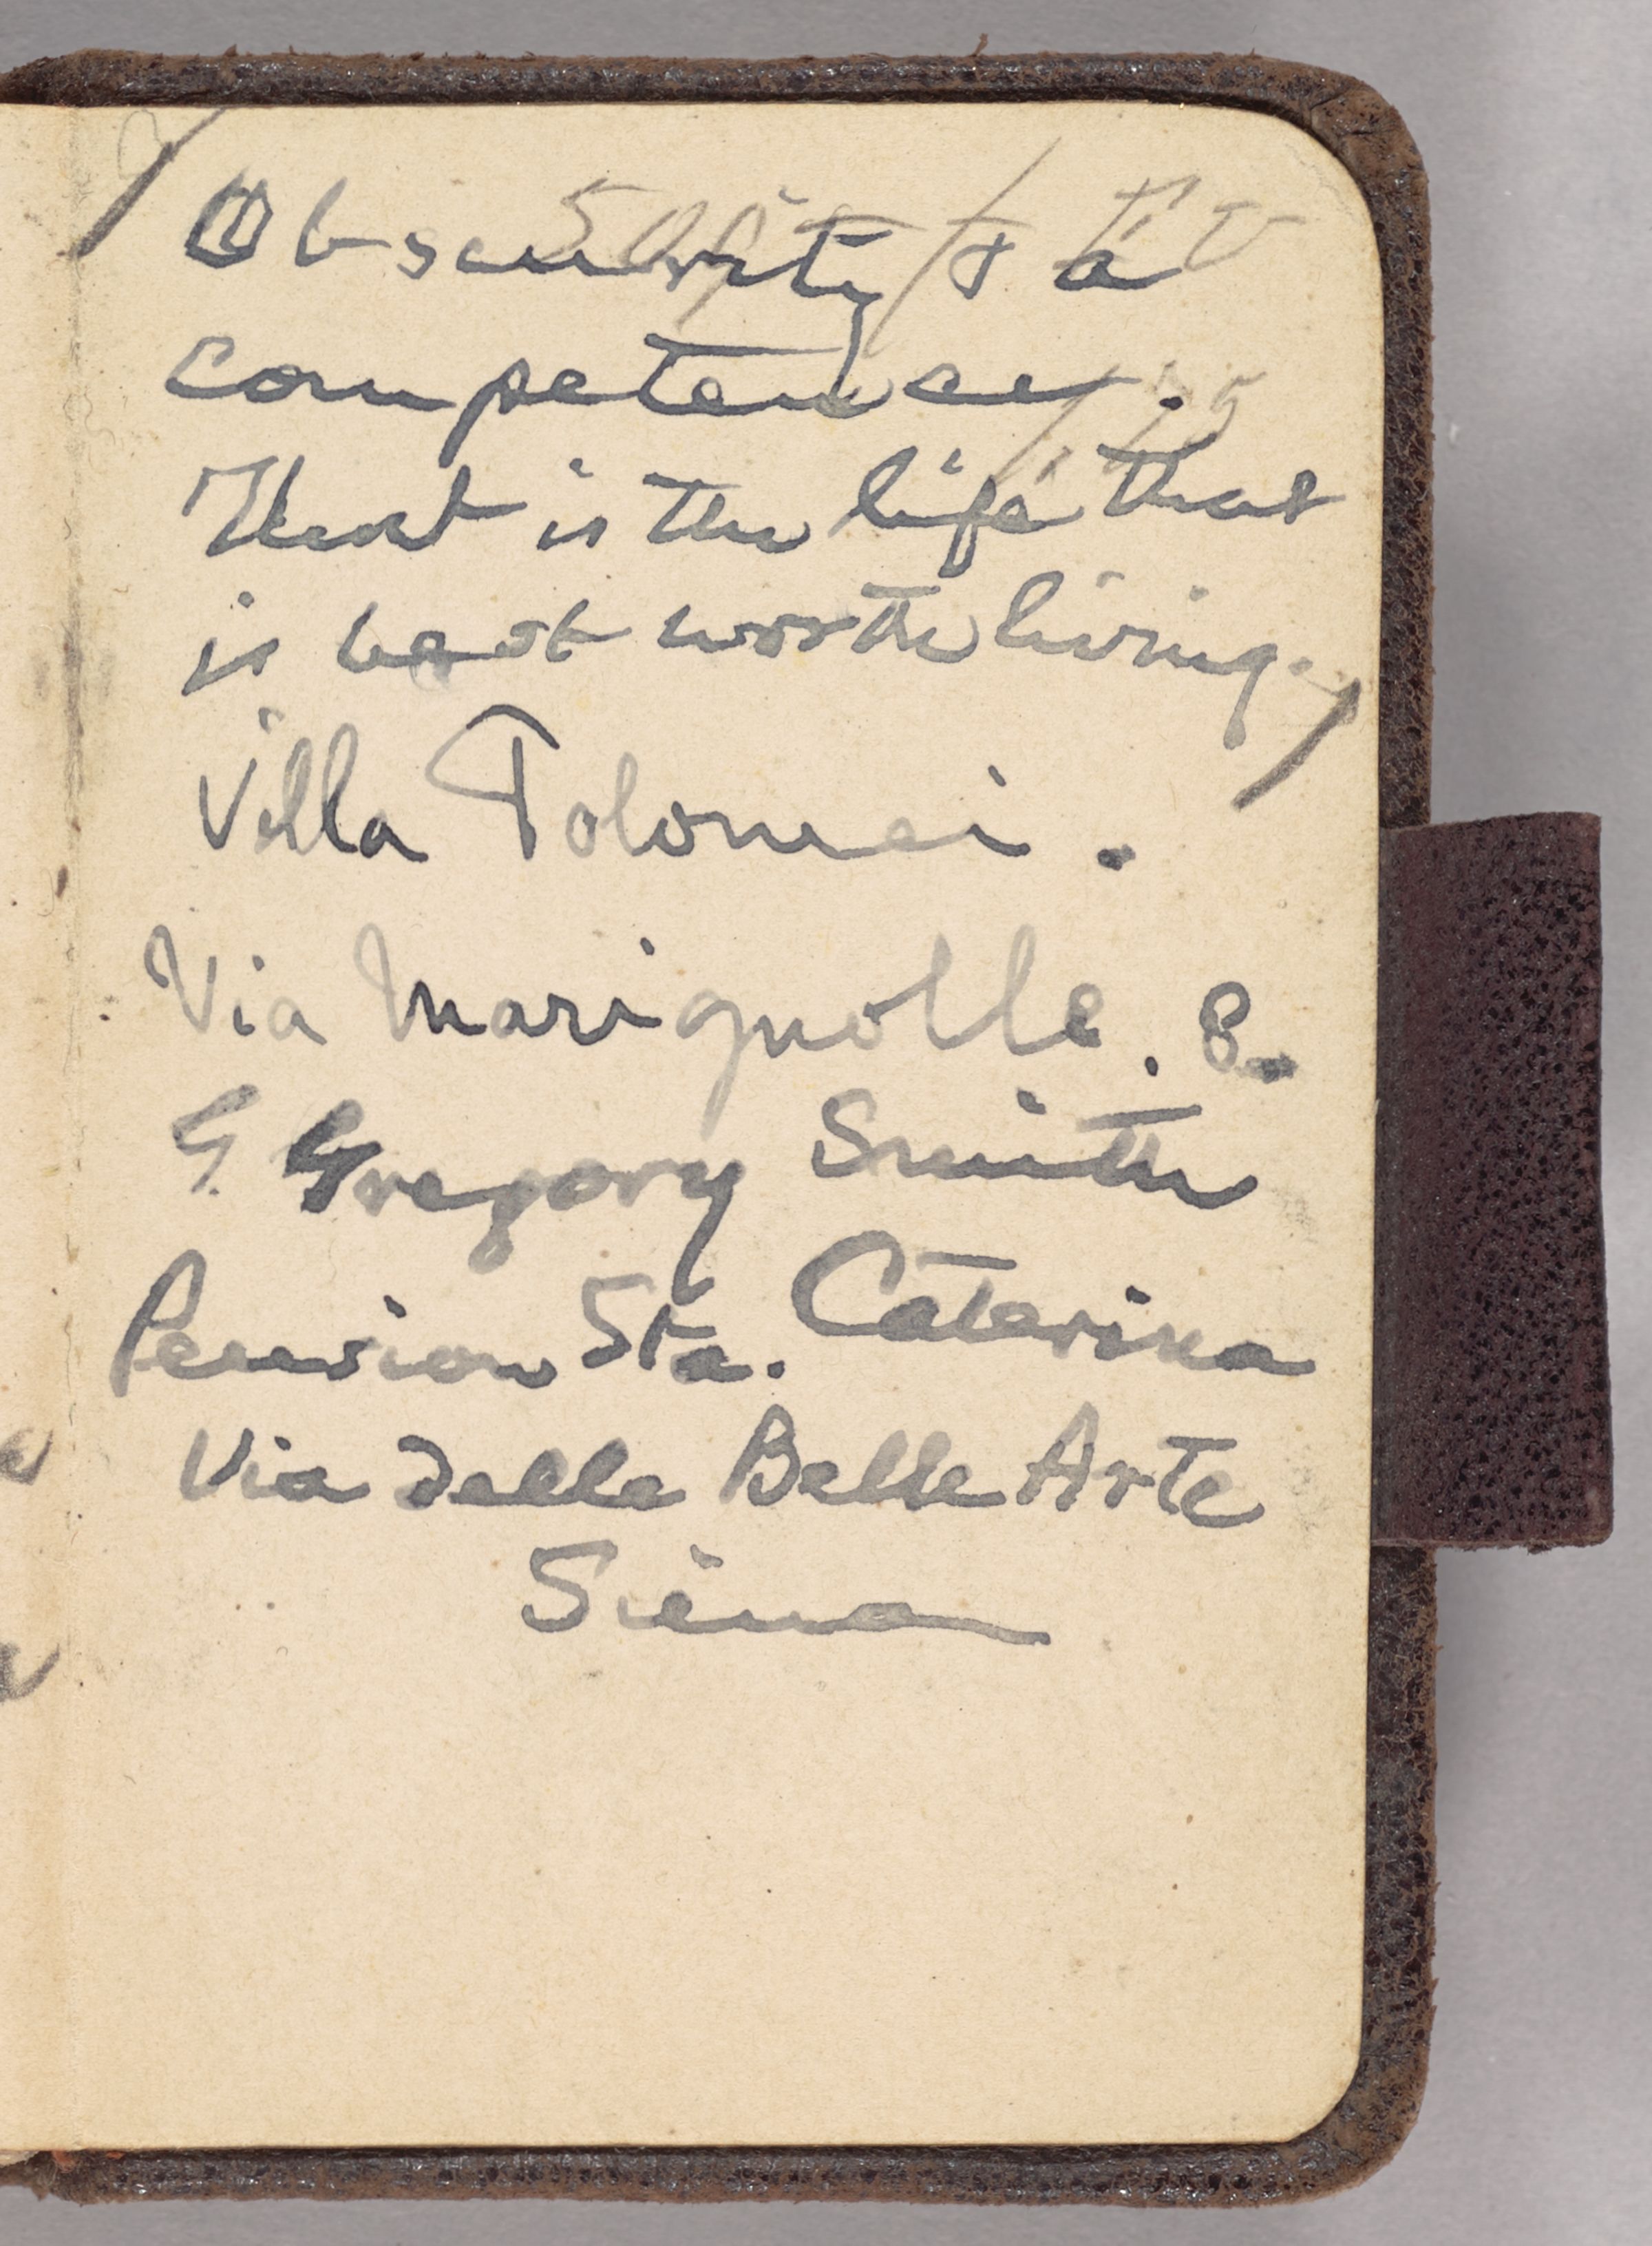 Obscurity & a
competence.
That is the life that
is best worth living.
Villa Tolomei.
Via Marignolle. 8.
G Gregory Smith
Pension Sta. Caterina
Via delle Belle Arte
Siena